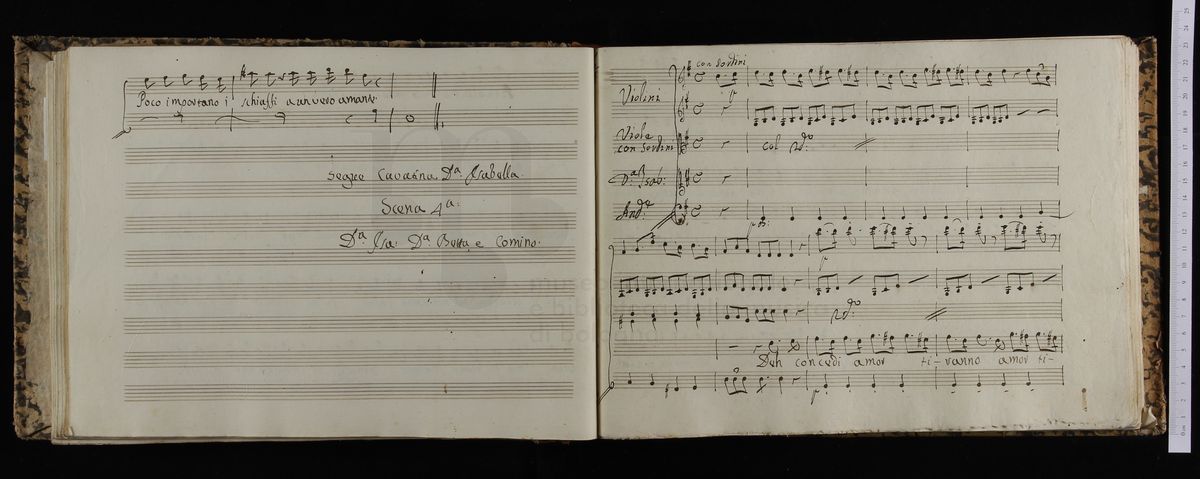 Poco importano i' schiaffi a un vero amante
Segue Cavatina D.a Isabella.
Scena 4.a
D.a Isa: D.a Betta, e Comino.
con sordini
Violini
Viole
con sordini
col 2.do
D.a Isab:
And.e
2.do
Deh concedi amor ti-ranno amor ti-
museo
e bibl
di bologna